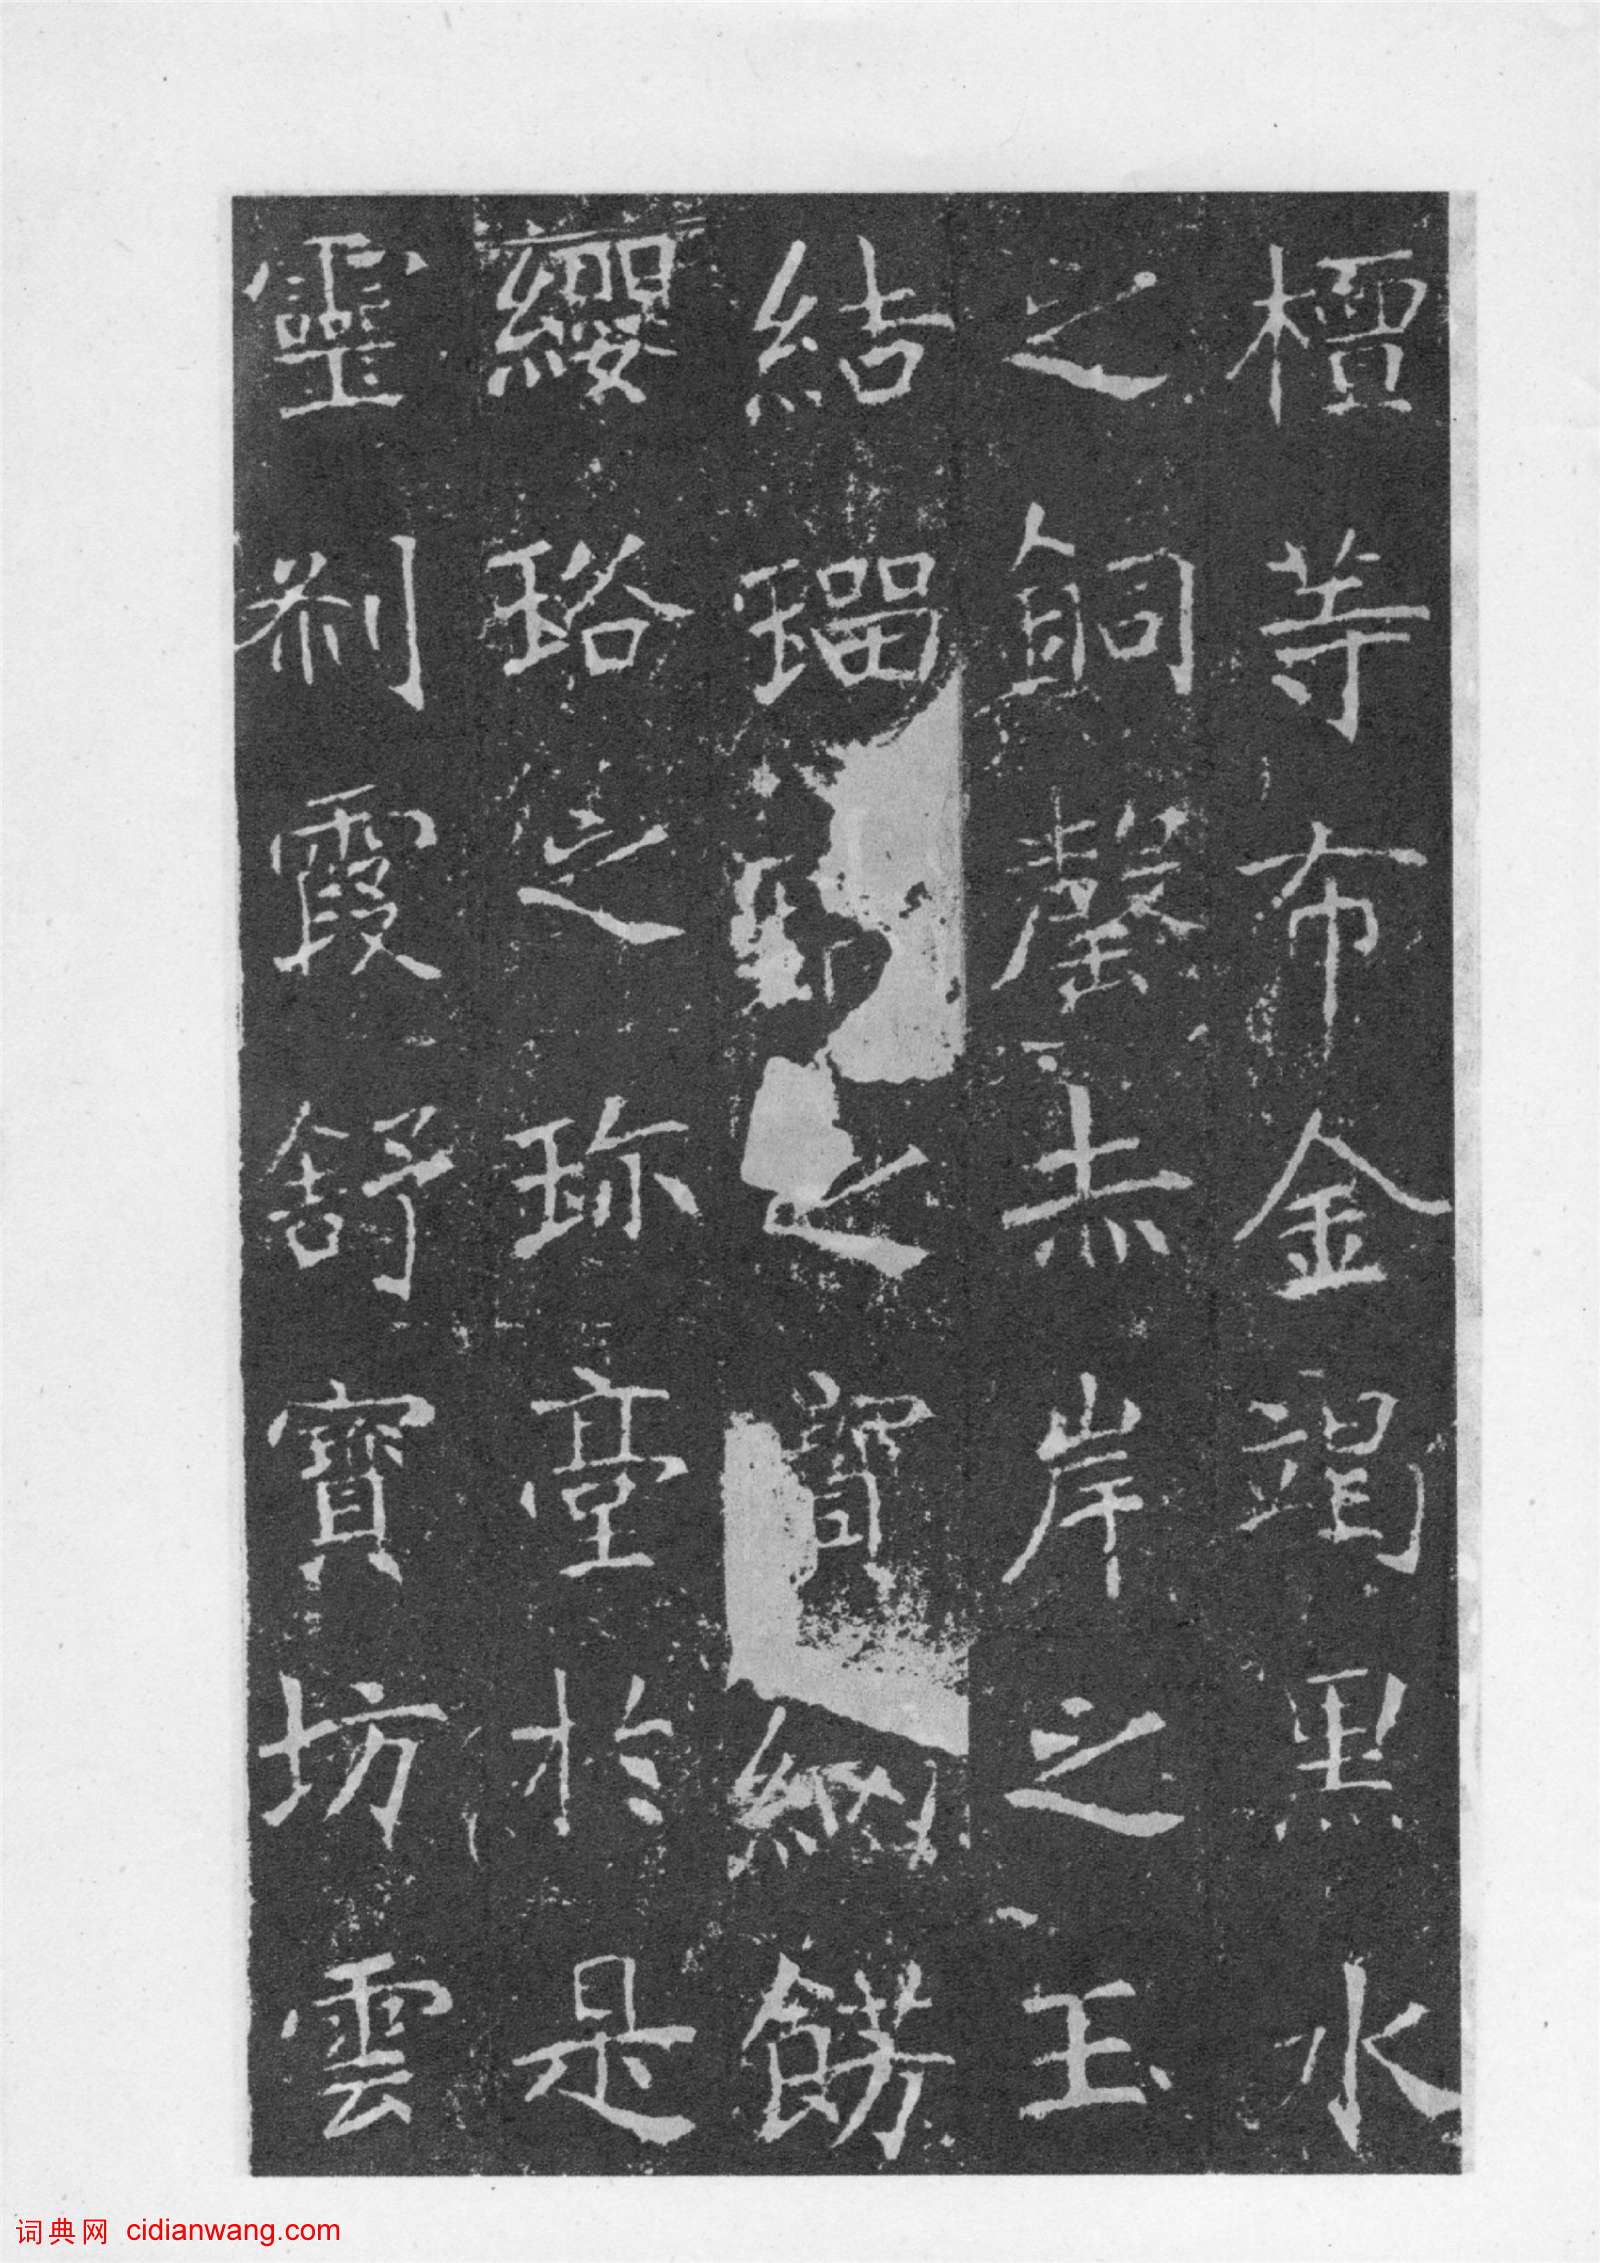 檀等布金竭黑水
之銅罄赤岸之玉
結瑠璃之寶網飾
纓珞之珍臺於是
靈刹霞舒寶坊雲
词典网 cidianwang.com